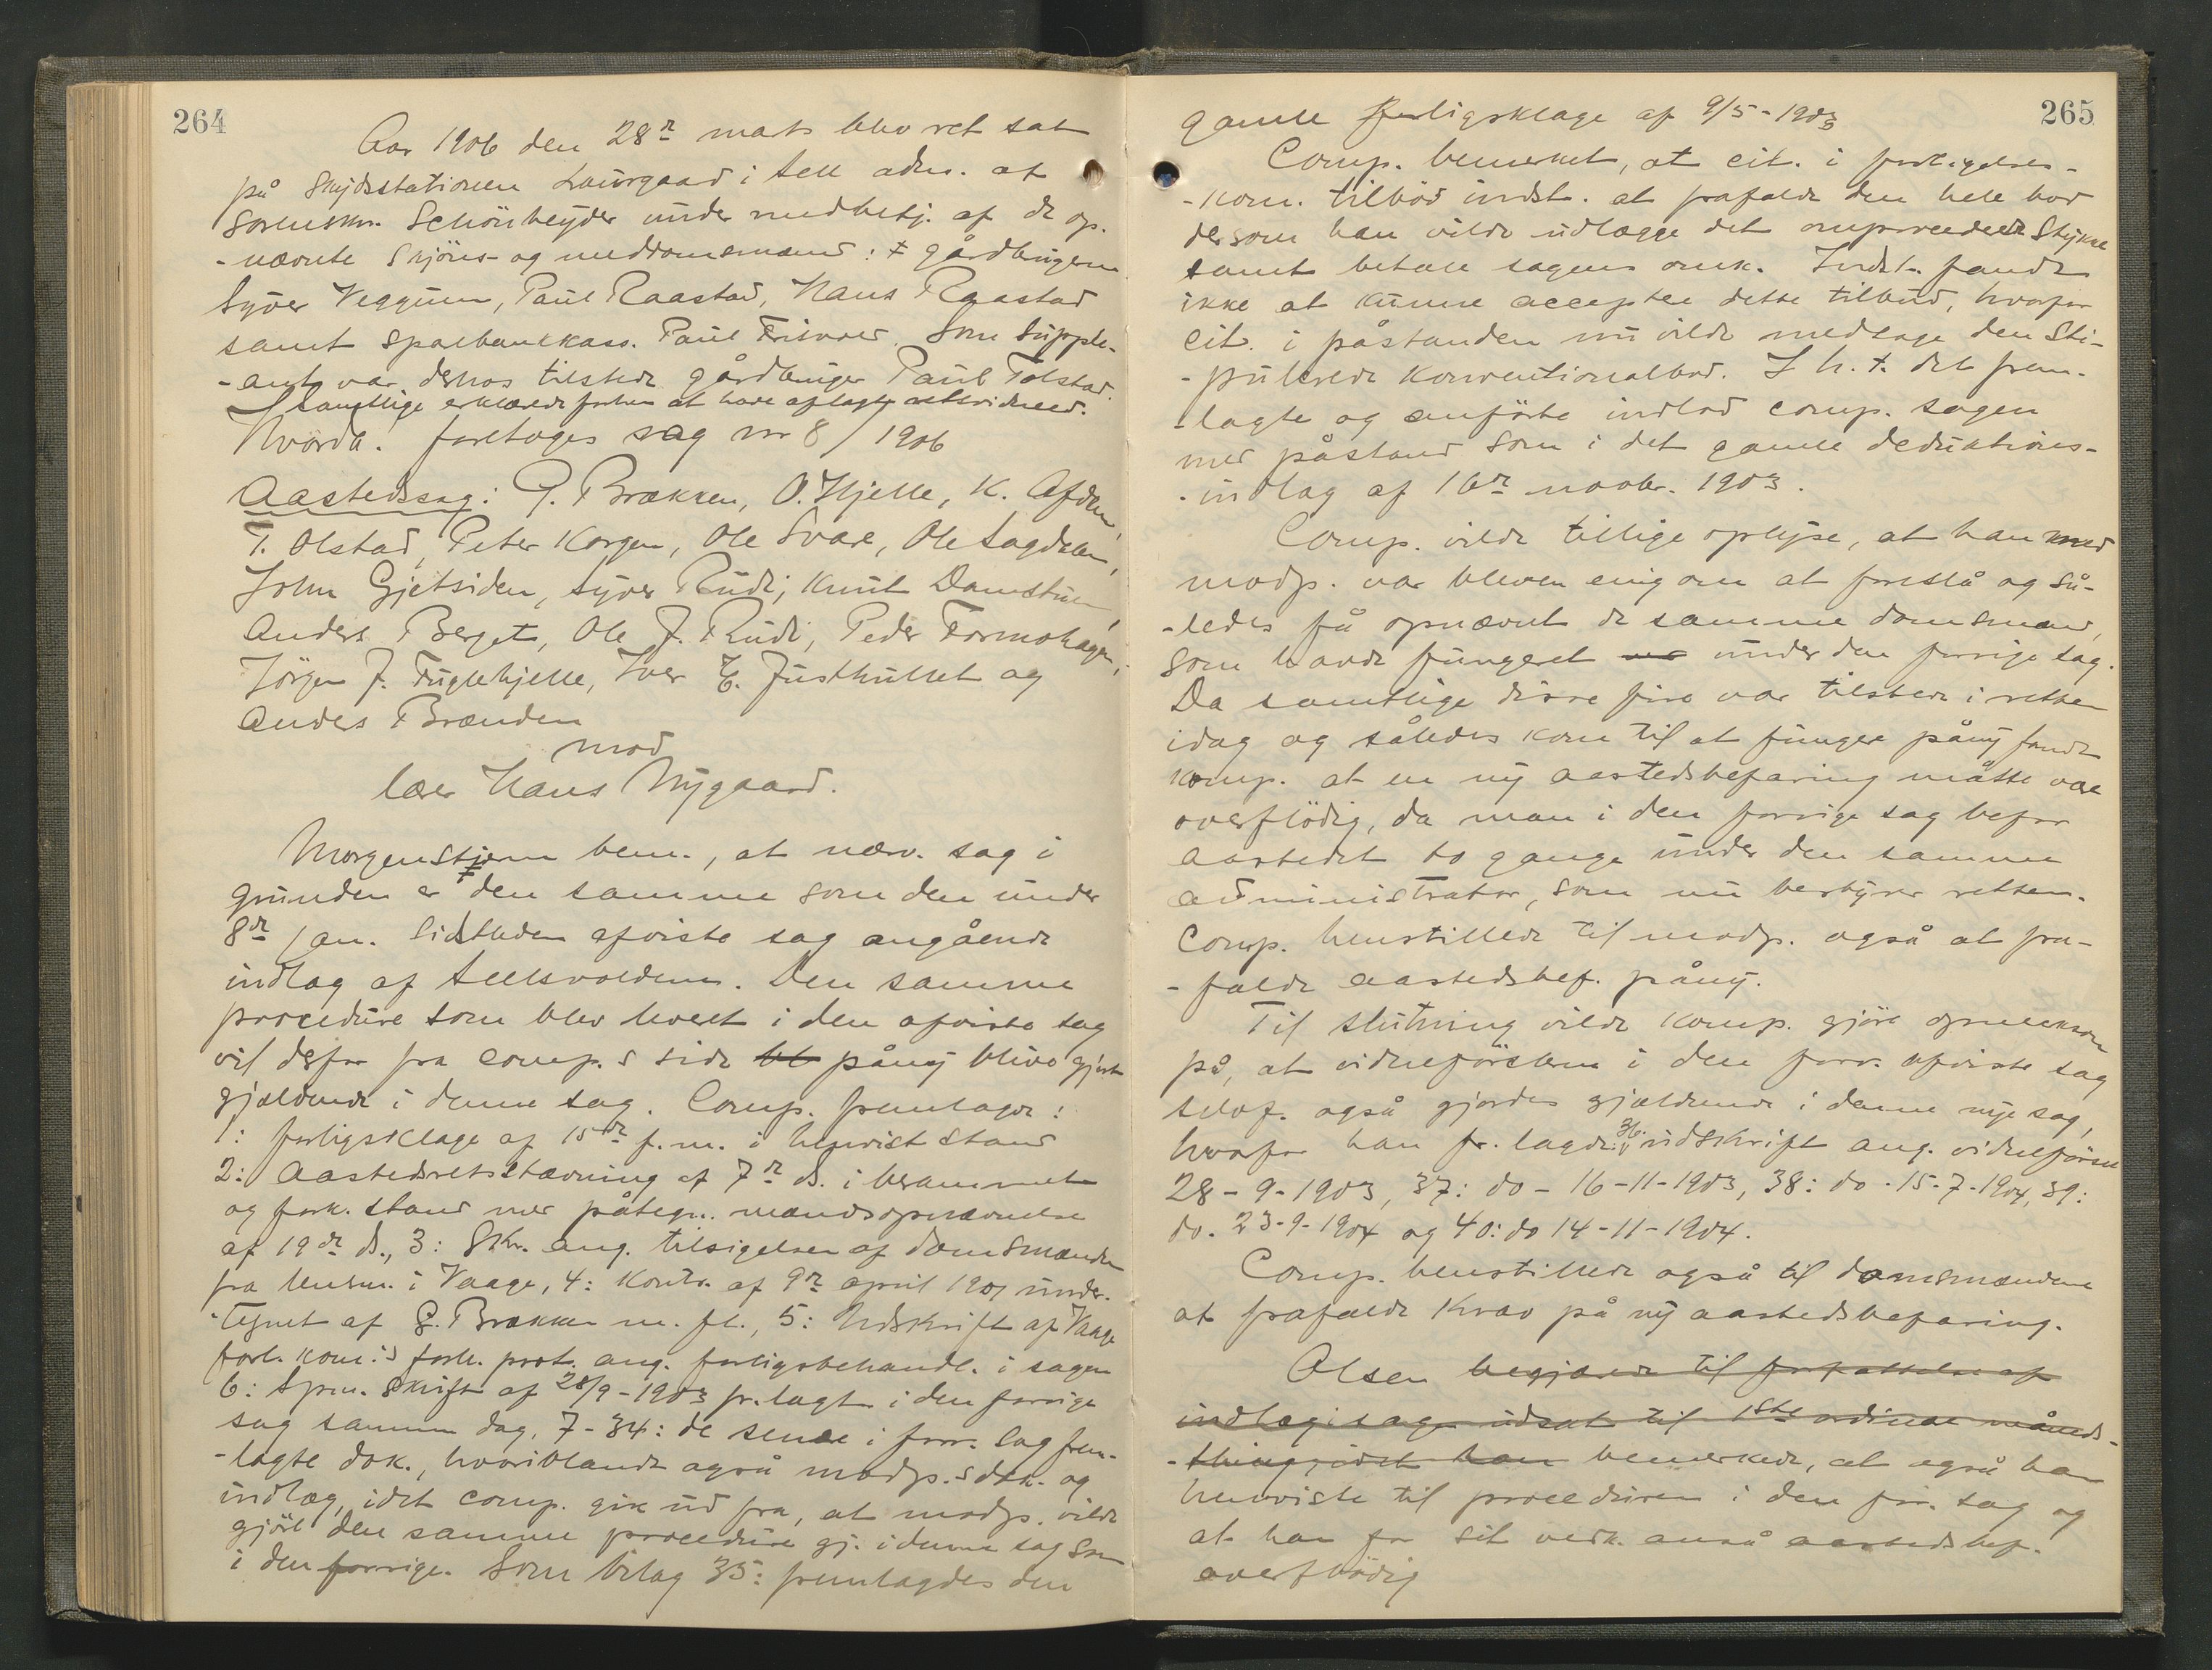 264
Aar 1906 den 28de mats blev ret sat
på Skydsstationen Laurgaard i Sell adm. af
sorenskr. Schönheyder under medbetj. af de op-
-nævnte Skjöns- og meddomsmænd: gårdbrugerne
Syver Veggum, Paul Raastad, Hans Raastad
samt sparebankkass. Paul Frisvoll. Som supple-
-ant var derhos tilstede gårdbruger Paul Tolstad.
Samtlige erklærede forhen at have aflagt
Hvorda! foretoges sag nr 8 / 1906
Aastedssag: P. Brækken, O. Hjelle, K. Afdem,
T. Olstad, Peter Korgen, Ole Svare, Ole Lagdalen,
John Gjetsiden, Syver Rudi, Knut Damstuen,
Anders Berget, Ole J. Rudi, Peder Formohagen,
Jörgen J. Fuglehjelle, Iver E. Justhullet og
Anders Brænden
mod
lærer Hans Nygaard.
Morgenstjerne bem., at nærv. sag i
grunden er den samme som den under
8de jan. sidstleden afviste sag angående
indlæg af Sellsvoldene. Den samme
procedure som blev levert i den afviste sag
vil derfor fra comp.s side bl påny blive gjort
gjældende i denne sag. Comp. fremlagde:
1: forligsklage af 15de f.m. i henvist stand
2: Aastedsretsstævning af 7de ds. i berammet
og fork. stand med påtegn. mandsopnævnelse
af 19de ds., 3: Skr. ang. tilsigelsen af domsmænden
fra lensm. i Vaage, 4: Kontr. af 9de april 1901 under-
-tegnet af G. Brækken m. fl., 5: Udskrift af Vaage
forl. kom.'s forh. prot. ang. forligsbehandl. i sagen
6: Spm. Skrift af 28/9-1903 fr.lagt i den forrige
sag samme dag, 7-34: de senere i forr. sag frem-
-lagte dok., hvoriblandt også modp.s dok. og
indlæg, idet comp. gik ud fra, at modp. vilde
gjöre den samme procedure gj. i denne sag som
i den forrige. Som bilag 35: fremlagdes den
265
gamle forligsklage af 9/5-1903
Comp. bemerket, at cit. i forligelses-
-kom. tilbød indst. at frafalde den hele bod
dersom han vilde udlægge det omprocederede Stykke
samt betale sagens omk. Indst. fandt
ikke at kunne acceptere dette tilbud, hvorfor
cit. i påstanden nu vilde medtage den sti-
-pulerede Konventionalbod. I h. t. det frem-
-lagte og anförte indlod comp. sagen
med påstand som i det gamle deduktions-
-indlæg af 16de novbr. 1903.
Comp. vilde tillige oplyse, at han med
modp. var bleven enig om at foreslå og så-
-ledes få opnævnt de samme domsmænd,
som havde fungeret under den forrige sag.
Da samtlige disse fire var tilstede i retten
idag og således kom til at fungere påny fandt
komp. at en ny aastedsbefaring måtte være
overflödig, da man i den forrige sag befor
aastedet to gange under den samme
administrator, som nu bestyrer retten.
Comp. henstillede til modp. også at fra-
-falde aastedsbef. påny.
Til slutning vilde komp. gjöre opmerksom
på, at vidneförslerne i den forr. afviste sag
selvf. også gjordes gjældende i denne nye sag,
hvorfor han fr. lagde: 36: udskrift ang. vidneförsel
28-9-1903, 37: do - 16-11-1903, 38: do. 15-7-1904, 39:
do. 23-9-1904 og 40: do 14-11-1904.
Comp. henstillede også til domsmændene
at frafalde krav på ny aastedsbefaring.
Olsen begjærede til forfattelse af
indlæg sagen udsat til 1ste ordinære måneds-
-thing idet han bemerkede, at også han
henviste til proceduren i den for. sag og
at han for sit vedk. anså aastedsbef.
overflödig